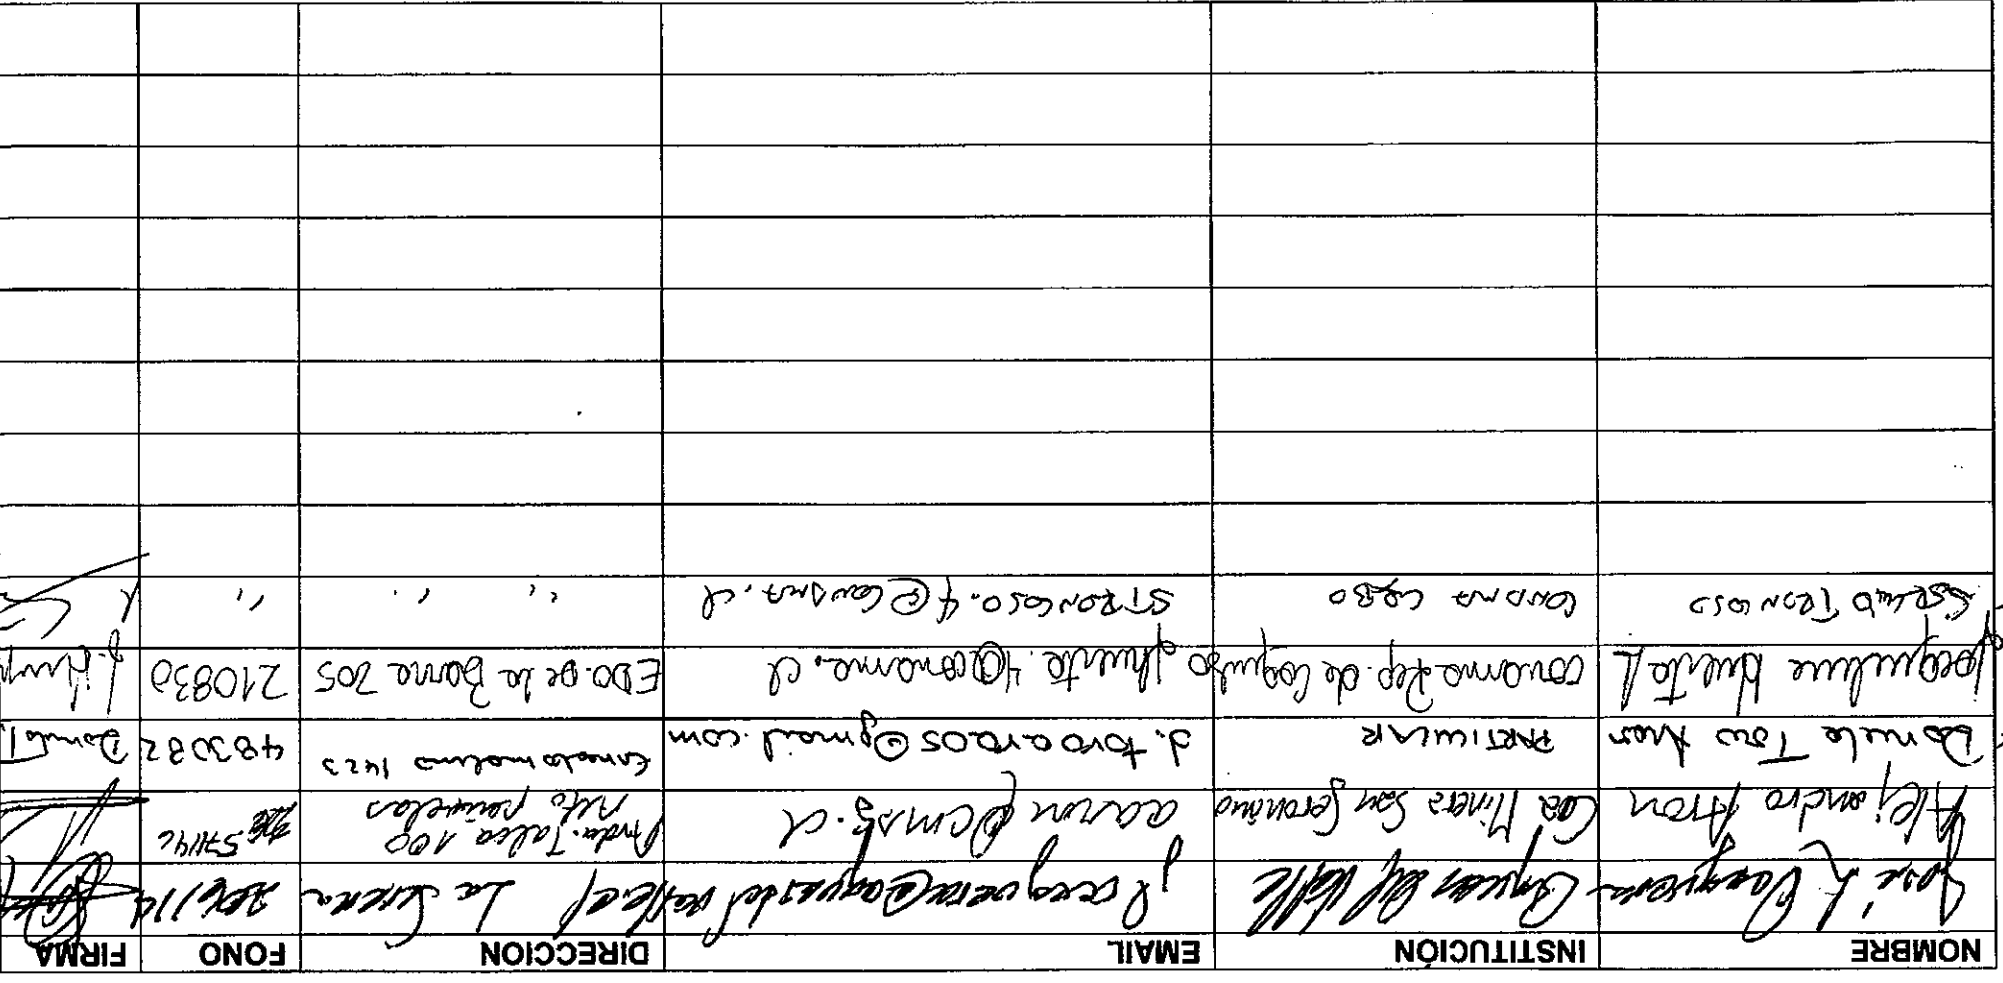 NOMBRE INSTITUCIÓN EMAIL DIRECCION FONO FIRMA
José L Vaquera Aguas del Valle jlvaquera@aguasdelvalle.cl La Serena 206114
Alejandro Aron Cía Minera San Gerónimo aaron@cmsg.cl Avda. Talca 100 Alto peñuelas 571146
Daniela Toro Araos PARTICULAR d.toroaraos@gmail.com 483082 Daniela T.
Jacqueline Huerta L conama Reg. de Coquimbo jhuerta.4@conama.cl EDO. De la Barra 205 210830 J. Huerta
Sergio Troncoso CONAMA STRONCOSO.4@conama.cl " " "